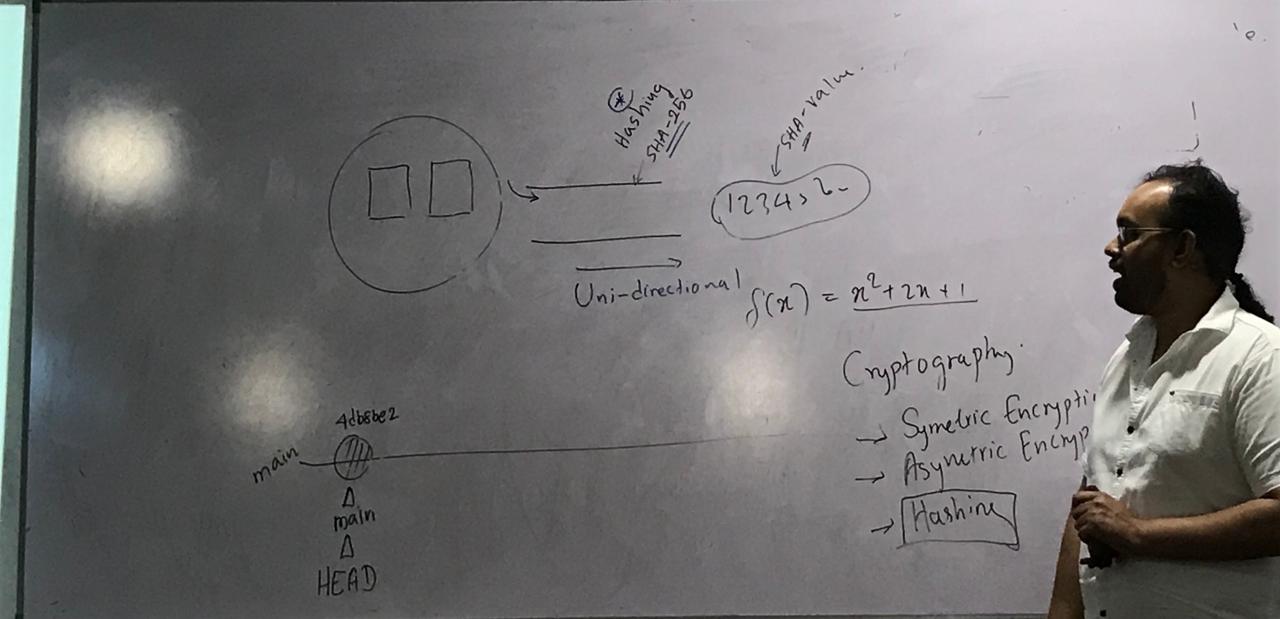 * Hashing
SHA-256
SHA-value.
Uni-directional
f(x) = x²+2x+1
Cryptography.
→ Symetric Encrypti
→ Asymetric Encryp
→ Hashing
4db8be2
main
main
HEAD